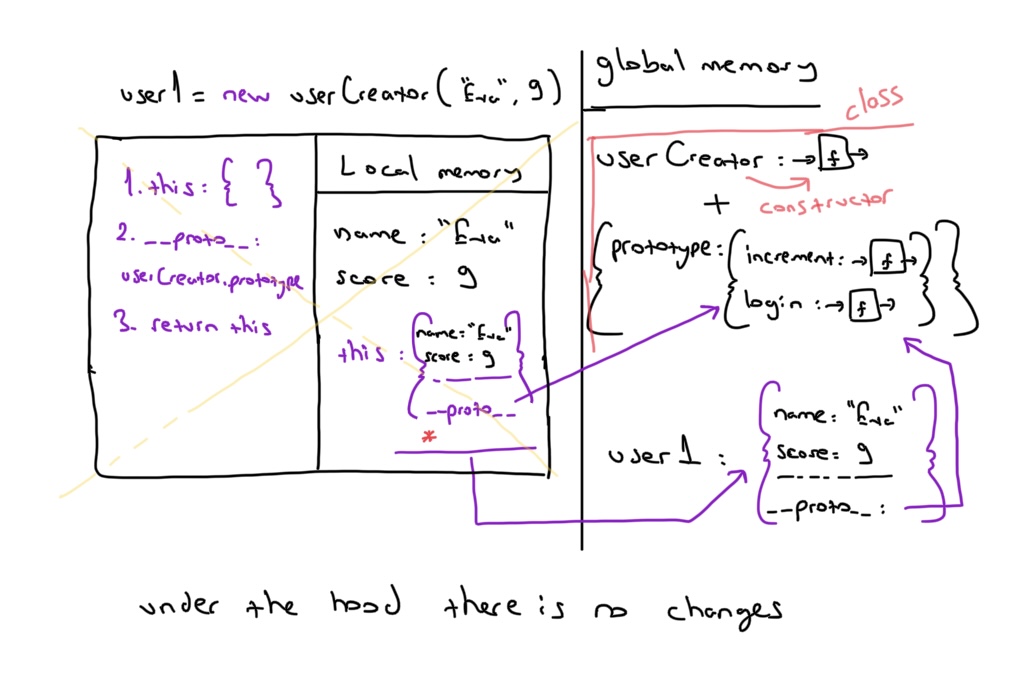 user1 = new userCreator("Eva", 9)
1. this: { }
2. __proto__:
userCreator.prototype
3. return this
Local memory
name : "Eva"
score : 9
this :
name: "Eva"
score : 9
__proto__
*
global memory
class
userCreator : → f →
constructor
+
prototype:
increment: → f →
login : → f →
user1 :
name: "Eva"
score: 9
__proto__ :
under the hood there is no changes